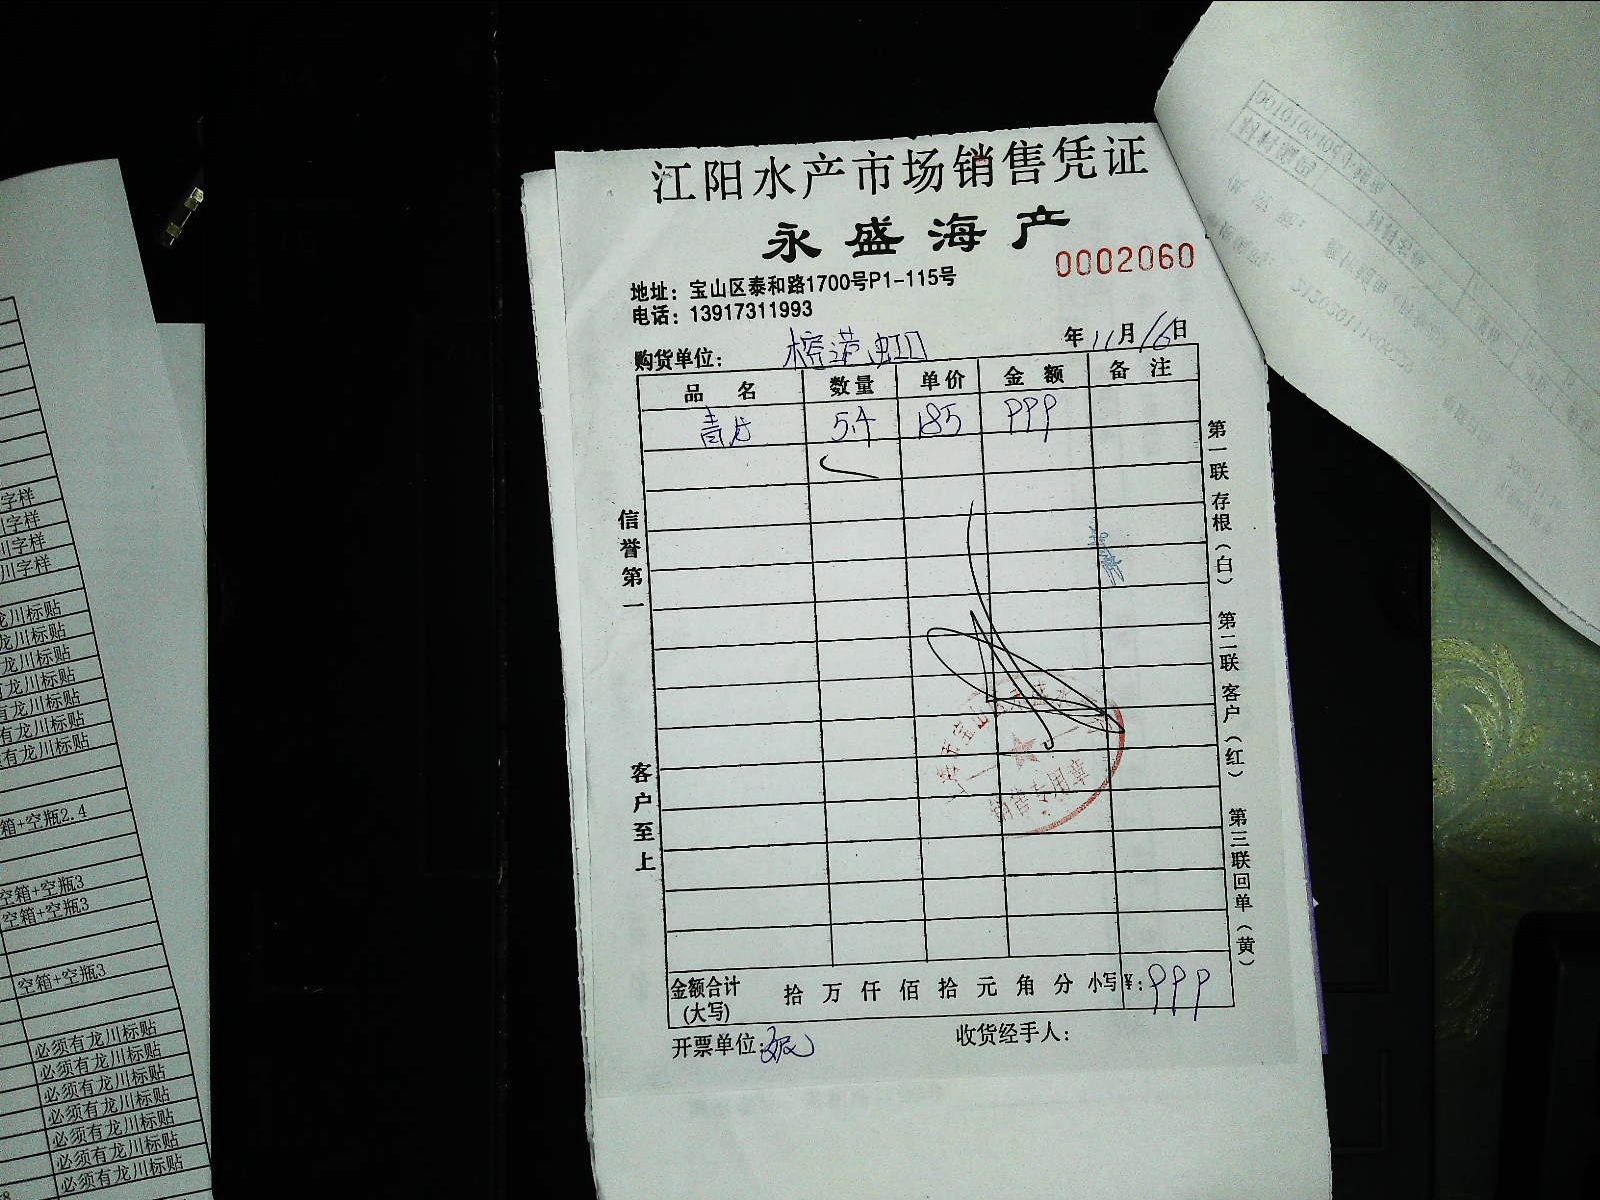 江阳水产市场销售凭证
永盛海产
0002060
地址：宝山区泰和路1700号P1-115号
电话：13917311993
购货单位： 虹口 年11月16日
品名 数量 单价 金额 备注
青占 5.4 185 999
信誉第一
客户至上
第一联存根（白） 第二联客户（红） 第三联回单（黄）
宝山
销售专用章
金额合计(大写) 拾万仟佰拾元角分 小写¥：999
开票单位： 收货经手人：
字样
川字样
川字样
川字样
龙川标贴
龙川标贴
龙川标贴
有龙川标贴
有龙川标贴
有龙川标贴
有龙川标贴
箱+空瓶2.4
空箱+空瓶3
空箱+空瓶3
空箱+空瓶3
必须有龙川标贴
必须有龙川标贴
必须有龙川标贴
必须有龙川标贴
必须有龙川标贴
必须有龙川标贴
必须有龙川标贴